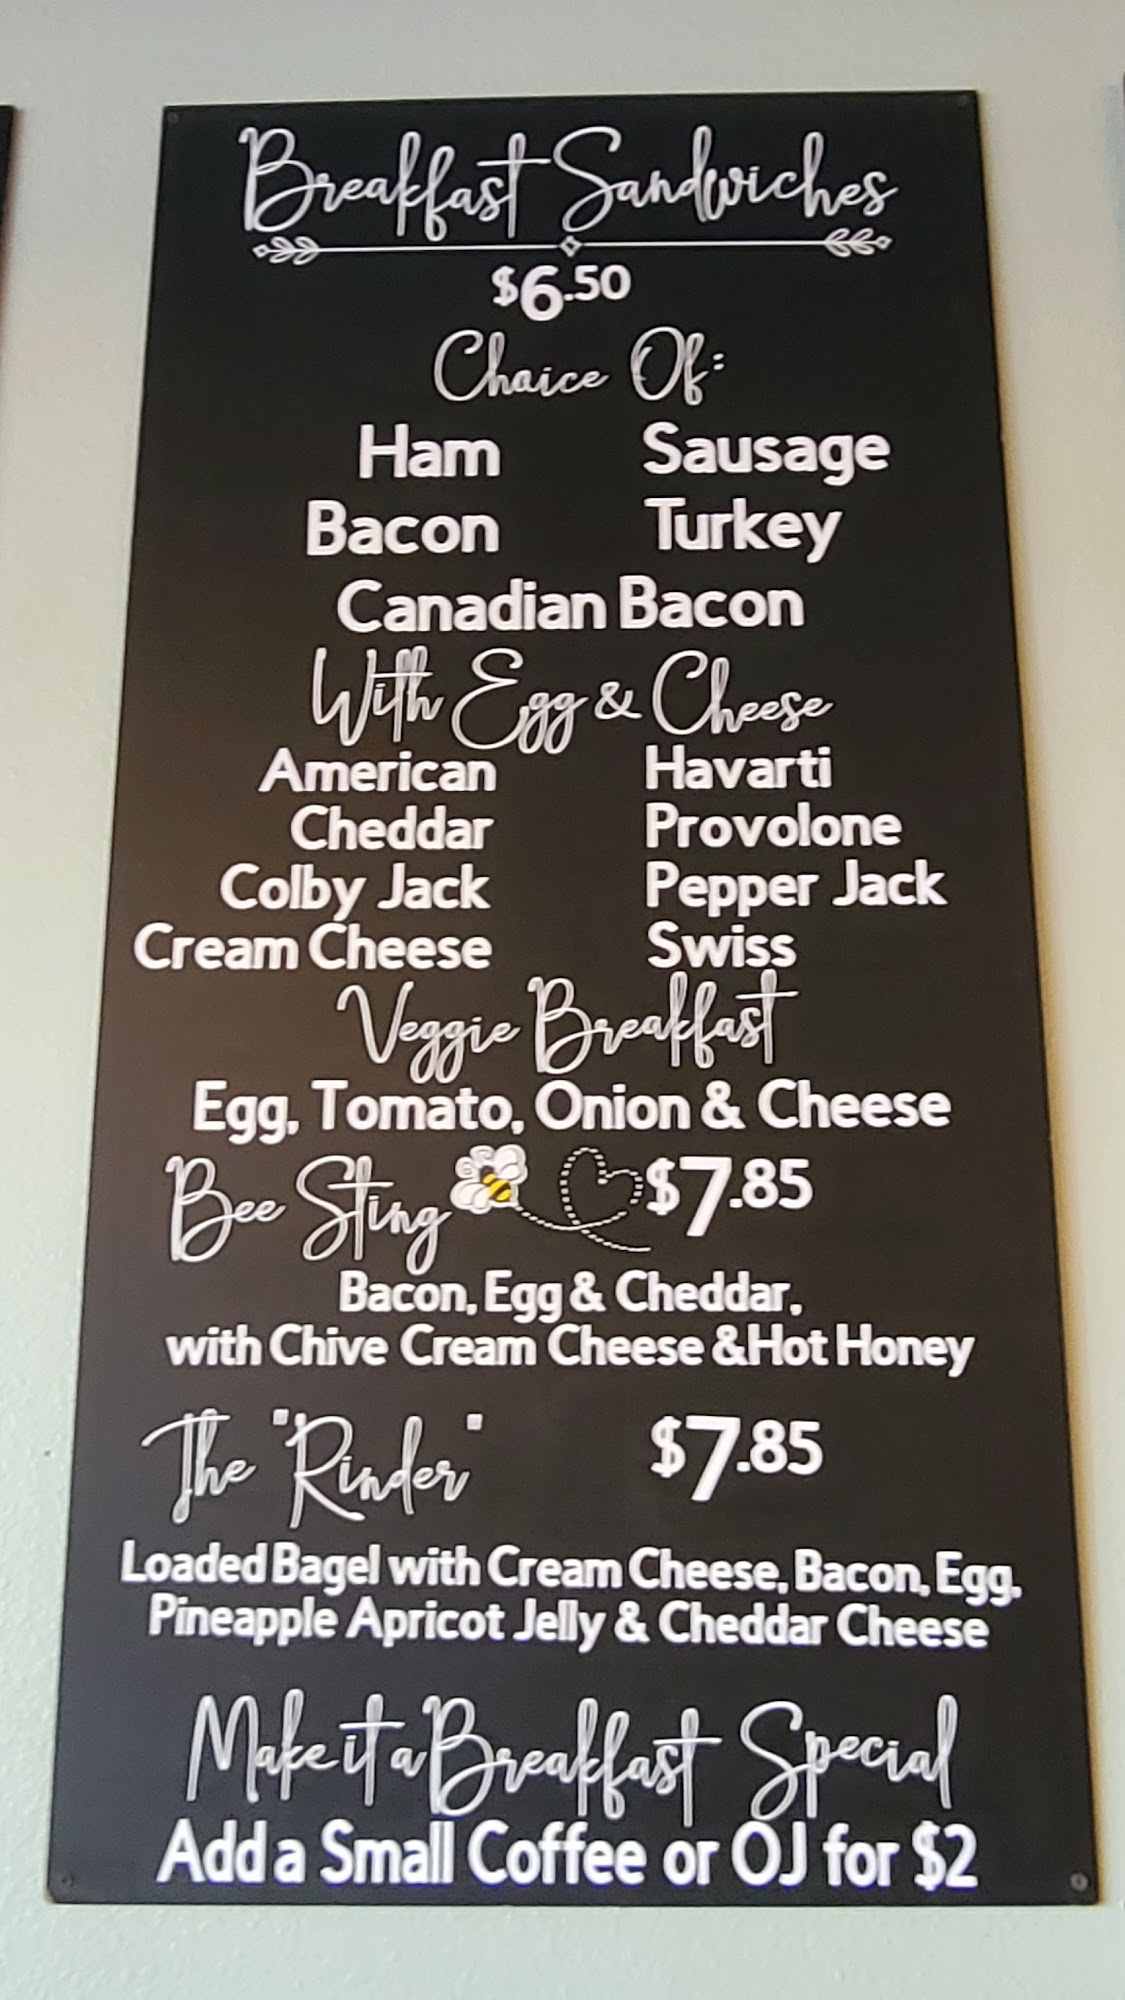 Breakfast Sandwiches
$6.50
Choice Of:
Ham Sausage
Bacon Turkey
Canadian Bacon
With Egg & Cheese
American Havarti
Cheddar Provolone
Colby Jack Pepper Jack
Cream Cheese Swiss
Veggie Breakfast
Egg, Tomato, Onion & Cheese
Bee Sting $7.85
Bacon, Egg & Cheddar,
with Chive Cream Cheese &Hot Honey
The "Rinder" $7.85
Loaded Bagel with Cream Cheese, Bacon, Egg,
Pineapple Apricot Jelly & Cheddar Cheese
Make it a Breakfast Special
Add a Small Coffee or OJ for $2